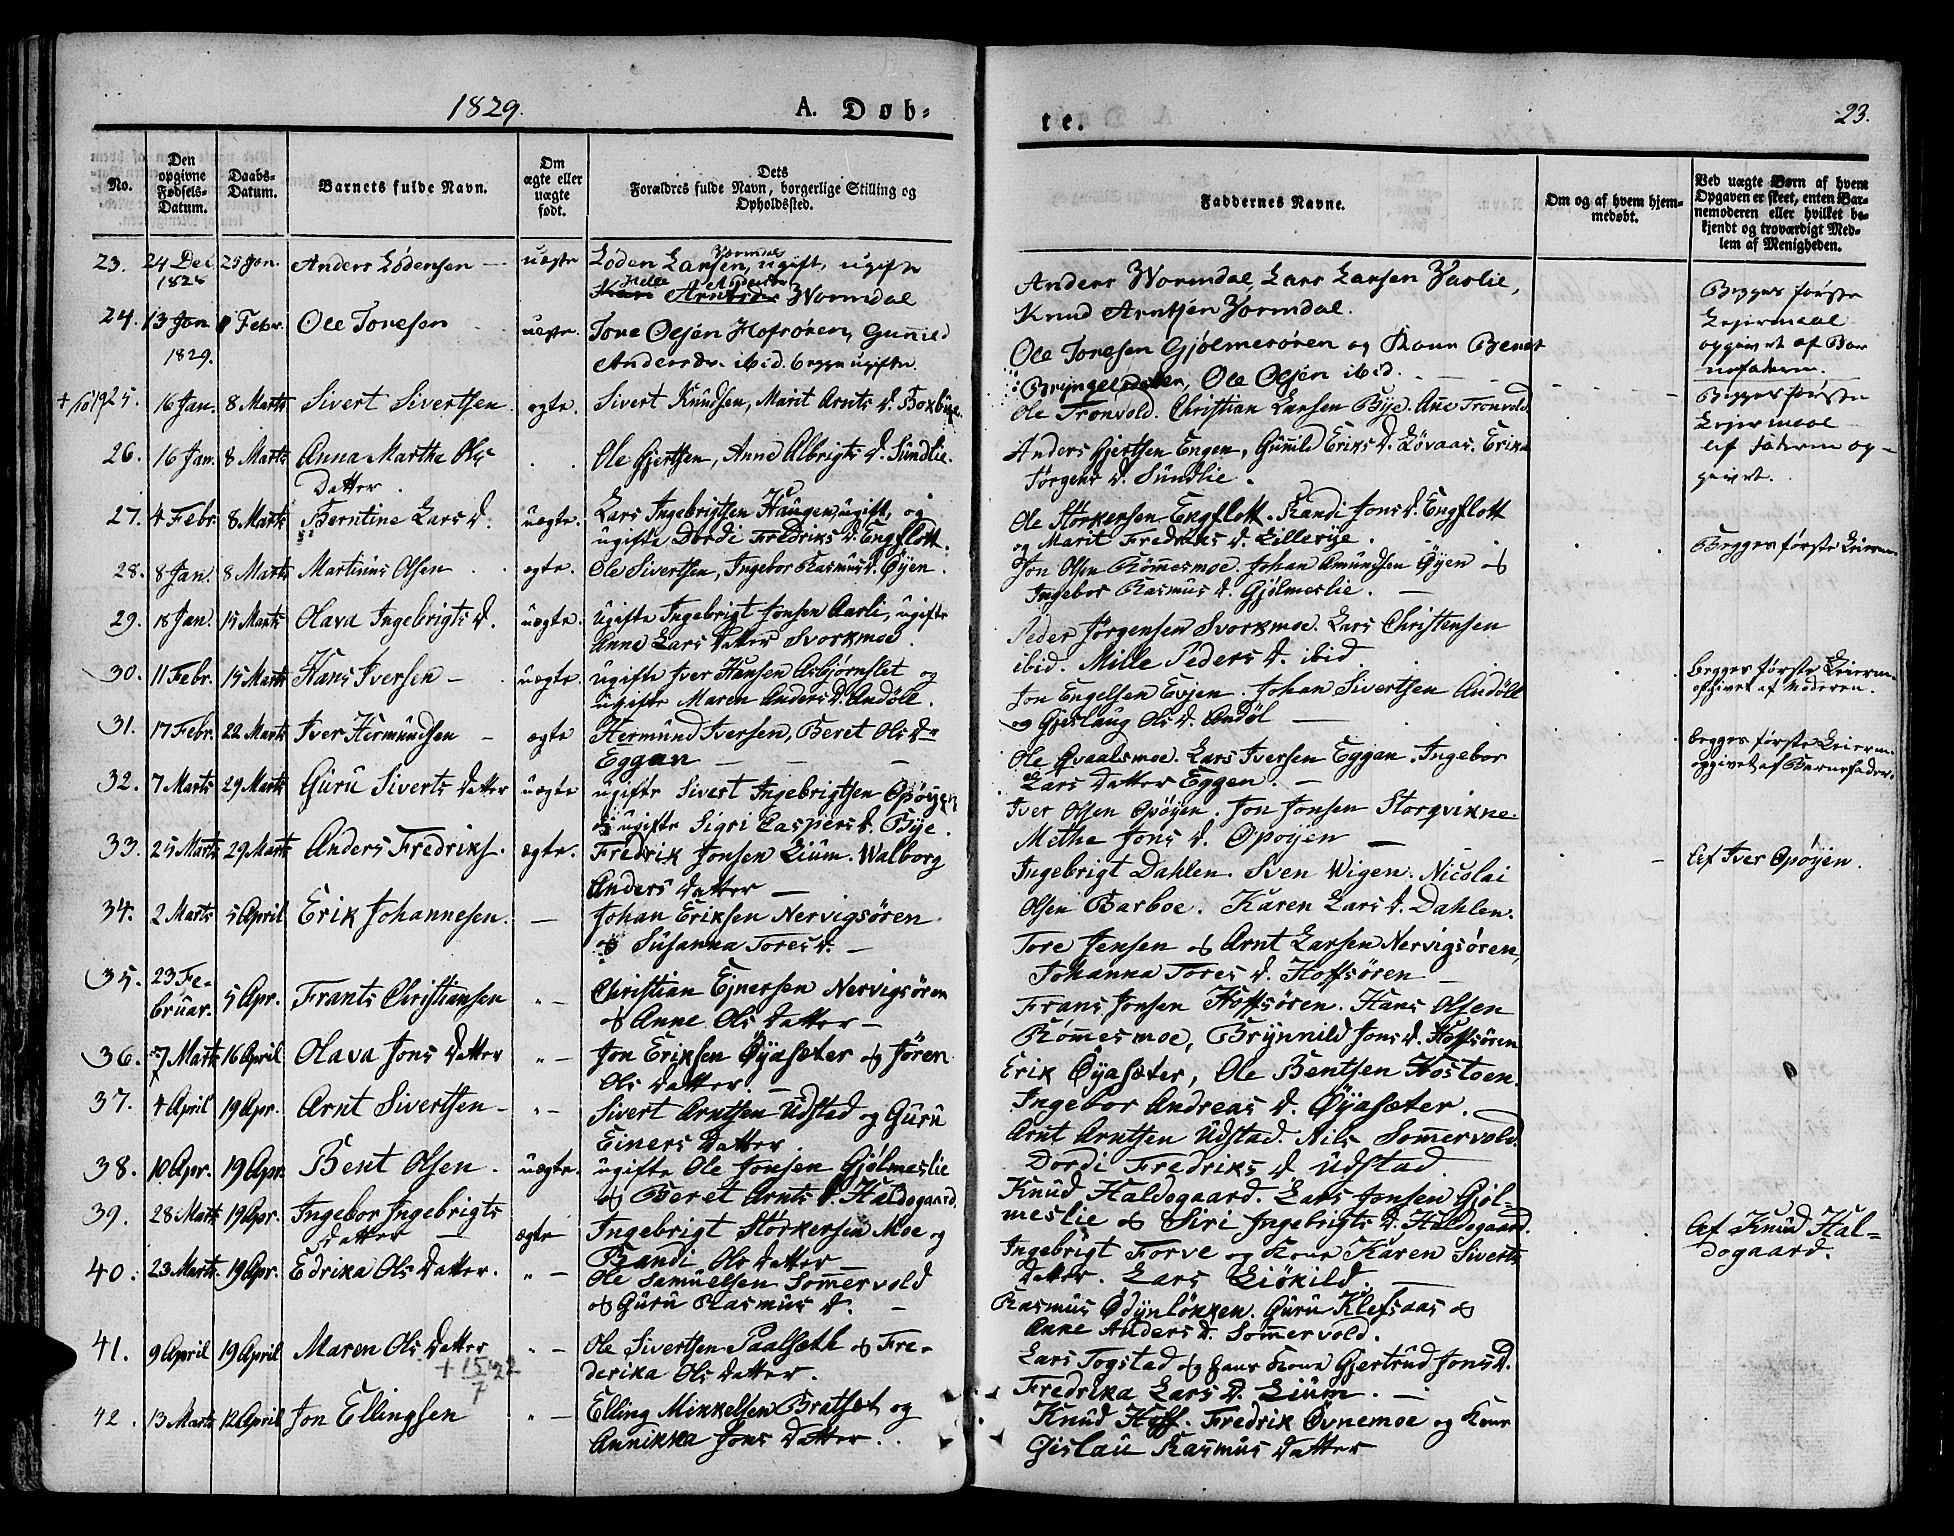 1829.
A. Døb-
No.
Den opgivne Fødsels-Datum.
Daabs-Datum.
Barnets fulde Navn.
Om ægte eller uægte født.
Dets Forældres fulde Navn, borgerlige Stilling og Opholdssted.
23. 24 Dec 25 Jan. Anders Lødensen — uægte Løden Larsen, Wormdal ugift, ugifte
1828 Helle Andersdr Wormdal
24. 13 Jan 1 Febr. Ole Toresen uægte. Tore Olsen Hofsøren, Gunnild
1829. Andersdr. ibid. begge ugifte.
25. 16 Jan. 8 Marts Sivert Sivertsen ægte. Sivert Knudsen, Marit Arnts D. Boxbye
26. 16 Jan. 8 Marts Anna Martha Ols Ole Gjertsen, Anne Albrigts D. Sundlie.
Datter.
27. 4 Febr. 8 Marts Berntine Lars D. uægte. Lars Ingebrigtsen Haugen, ugift, og
ugifte Dordi Fredriks D. Engflott.
28. 8 Jan. 8 Marts Martinus Olsen ægte. Ole Sivertsen, Ingebor Rasmus D. Øyen.
29. 18 Jan 15 Marts Olava Ingebrigts D. uægte. ugifte Ingebrigt Jonsen Aarli, ugifte
Anne Lars Datter Svorkmoe.
30. 11 Febr. 15 Marts Hans Iversen — uægte. ugifte Iver Hansen Asbjørnslet og
ugifte Maren Anders D. Andøll.
31. 17 Febr. 22 Marts Iver Hermundsen — ægte Hermund Iversen, Beret Ols D.
Eggan — — —
32. 7 Marts 29 Marts Guru Siverts Datter uægte ugifte Sivert Ingebrigtsen Opøyen
og ugifte Sigri Caspers D. Bye.
33. 25 Marts 29 Marts Anders Fredriks. ægte. Fredrik Jonsen Lium. Walborg
Anders Datter —
34. 2 Marts 5 April Erik Johannesen. — Johan Eriksen Nervigsören
og Susanna Tores D. —
35. 23 Fe-
bruar. 5 Apr. Frants Christiansen „ — Christian Ejnersen Nervigsören
og Anne Ols Datter —
36. 7 Marts 16 April Olava Jons Datter „ — Jon Eriksen Øyasæter og Jören
Ols Datter —
37. 4 April 19 Apr. Arnt Sivertsen — „ — Sivert Arntsen Udstad og Guru
Einers Datter.
38. 10 Apr. 19 Apr. Bent Olsen. uægte. ugifte Ole Jonsen Gjölmeslie
og Beret Arnts D. Haldogaard.
39. 28 Marts 19 Apr. Ingebor Ingebrigts
Datter — ægte Ingebrigt Störkersen Moe og
Randi Ols Datter —
40. 23 Marts 19 Apr. Edrika Ols Datter. „ — Ole Samuelsen Sommervold
og Guru Rasmus D. —
41. 9 April 19 April Maren Ols Datter „ — Ole Sivertsen Paalseth og Fre-
derika Ols Datter.
42. 13 Marts 12 April Jon Ellingsen „ — Elling Mikkelsen Bratset og
Annikka Jons Datter.
te.
23.
Faddernes Navne.
Om og af hvem hjemmedøbt.
Ved uægte Børn af hvem Opgaven er skeet, enten Barnemoderen eller hvilket bekjendt og troværdigt Medlem af Menigheden.
Anders Wormdal, Lars Larsen
Knud Arntsen Wormdal.
Ole Toresen Gjølmesøren og Kone Beret
Ole Olsen ibid.
Ole Tronvold. Christian Larsen Bye. Ane Tronvold.
Anders Gjertsen Engen, Gunild Eriks D. Løvaas, Erika
Jørgens D. Sundlie.
Ole Størkersen Engflott. Randi Jons D. Engflott
og Marit Fredriks D. Lillerye.
Jon Olsen Rømmesmoe. Johan Amundsen Øyen og
Ingebor Rasmus D. Gjølmeslie. —
Peder Jørgensen Svorkmoe. Lars Christensen
ibid. Mille Peders D. ibid.
Jon Engelsen Evjen. Johan Sivertsen Andöll
og Gjerlaug Ols D. Andøl —
Ole Qvaalsmoe. Lars Iversen Eggan. Ingebor
Lars Datter Eggen. —
Iver Olsen Opöyen. Jon Jonsen Storqvikne.
Methe Jons D. Opoyen —
Ingebrigt Dahlen. Sven Wigen. Nicolai
Olsen Barboe. Karen Lars D. Dahlen.
Tore Jensen og Arnt Larsen Nervigsören,
Johanna Tores D. Hoffsören —
Frans Jonsen Hoffsören. Hans Olsen
Rømmesmoe, Brynnild Jons D. Hoffsören
Erik Øyasæter, Ole Bentsen Hostoen.
Ingebor Andreas D. Øyasæter.
Arnt Arntsen Udstad. Nils Sommervold.
Dordi Fredriks D. Udstad.
Knud Haldogaard. Lars Jonsen Gjöl-
meslie og Siri Ingebrigts D. Haldogaard.
Ingebrigt Forve og Kone Karen Siverts
Datter. Lars Liökild. —
Rasmus Ödynlökken. Guru Klefsaas og
Anne Anders D. Sommervold.
Lars Togstad og hans Kone Gjertrud Jons D.
Fredrika Lars D. Lium. —
Knud Hoff. Fredrik Øvnemoe og Kone
Gislau Rasmus Datter
Begges første
Lejermaal
opgivet af Bar
nefadern.
Begges første
Lejermaal
Af Faderen op-
givet.
Begges første Leierm.
begges første Leierm.
opgivet af Moderen.
begges første Leierm.
opgivet af Barnefader.
Af Iver Opøyen.
Af Knud Hal-
dogaard.